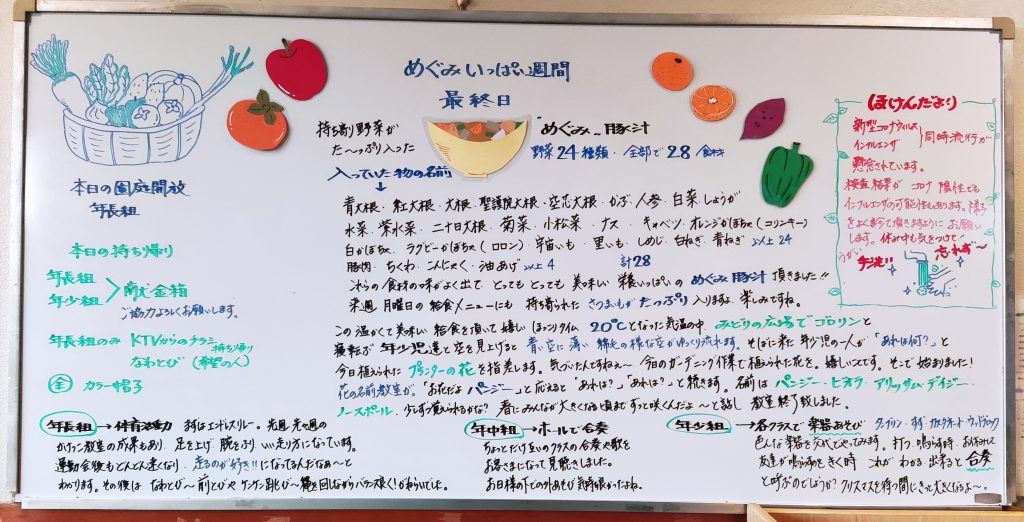 めぐみいっぱい週間
最終日
持ち寄り野菜が
た〜っぷり入った
めぐみ〜豚汁
野菜24種類・全部で28食材
入っていた物の名前
↓
青大根・紅大根・大根・聖護院大根・空芯大根・かぶ・人参・白菜・しょうが
水菜・紫水菜・二十日大根・菊菜・小松菜・ナス・キャベツ・オレンジかぼちゃ(コリンキー)
白かぼちゃ・ラグビーかぼちゃ(ロロン)・宇宙いも・里いも・しめじ・白ねぎ・青ねぎ 以上24
豚肉・ちくわ・こんにゃく・油あげ 以上4 計28
これらの食材の味がよく出て とっても とっても 美味しい 栄養いっぱいの めぐみ豚汁 頂きました!!
来週 月曜日の給食メニューにも 持ち寄られた さつまいもが たっぷり 入りますよ。楽しみですね。
この温かくて美味しい 給食を頂いて嬉しい ほっこりタイム 20℃となった気温の中、みどりの広場でゴロリンと
寝転ぶ 年少児達と空を見上げると 青い空に 薄い 綿毛の様な雲がゆっくり流れます。そばに来た 年少児の一人が「あれは何?」と
今日植えられた プランターの花 を指差します。気づいたんですねぇ〜 今日のガーデニング作業で植えられた花を。嬉しいことです。そこで始まりました!
花の名前教室が。「お花だよ パンジー」と応えると「あれは?」「あれは?」と続きます。名前は パンジー・ビオラ・アリッサム・デイジー・
ノースポール。 春にみんなが大きくなる頃まで ずっと咲くんだよ 〜と話し 教室終了致しました。
本日の園庭開放
年長組
本日の持ち帰り
年長組
年少組
献金箱
ご協力よろしくお願いします。
年長組のみ KTVからのチラシ
持ち帰り
なわとび (希望の人)
全 カラー帽子
ほけんだより
新型コロナウィルス
インフルエンザ
同時流行が
懸念されています。
検査結果が コロナ陰性でも
インフルエンザの可能性もあります。様子
をよく診て頂きますように お願い
します。休み中も気をつけて!
うがい
手洗い
忘れず〜
年長組→体育活動 まずはエンドレスリレー。先週、先々週の
かけっこ教室の成果もあり、足を上げ、腕をふり いい走り方になっています。
運動会後もどんどん速くなり、走るのが好き!! になってるんだなぁ〜と
わかります。その後は なわとび〜前とびやケンケン跳び〜
年中組→ホールで合奏
ちょっとだけ互いのクラスの合奏や歌を
お客さまになって見聴きしました。
お日様の下での外あそび 気持ち良かったよね。
年少組→各クラスで楽器あそび タンブリン・すず・カスタネット・ウッドブロック
色んな楽器を交代でやってみます。打つ、鳴らす時、お休みして
友達が鳴らすをきく時 これが わかる・出来ると 合奏
と呼ぶのでしょうか? クリスマスを待つ間にきっと大きくなるよ〜。